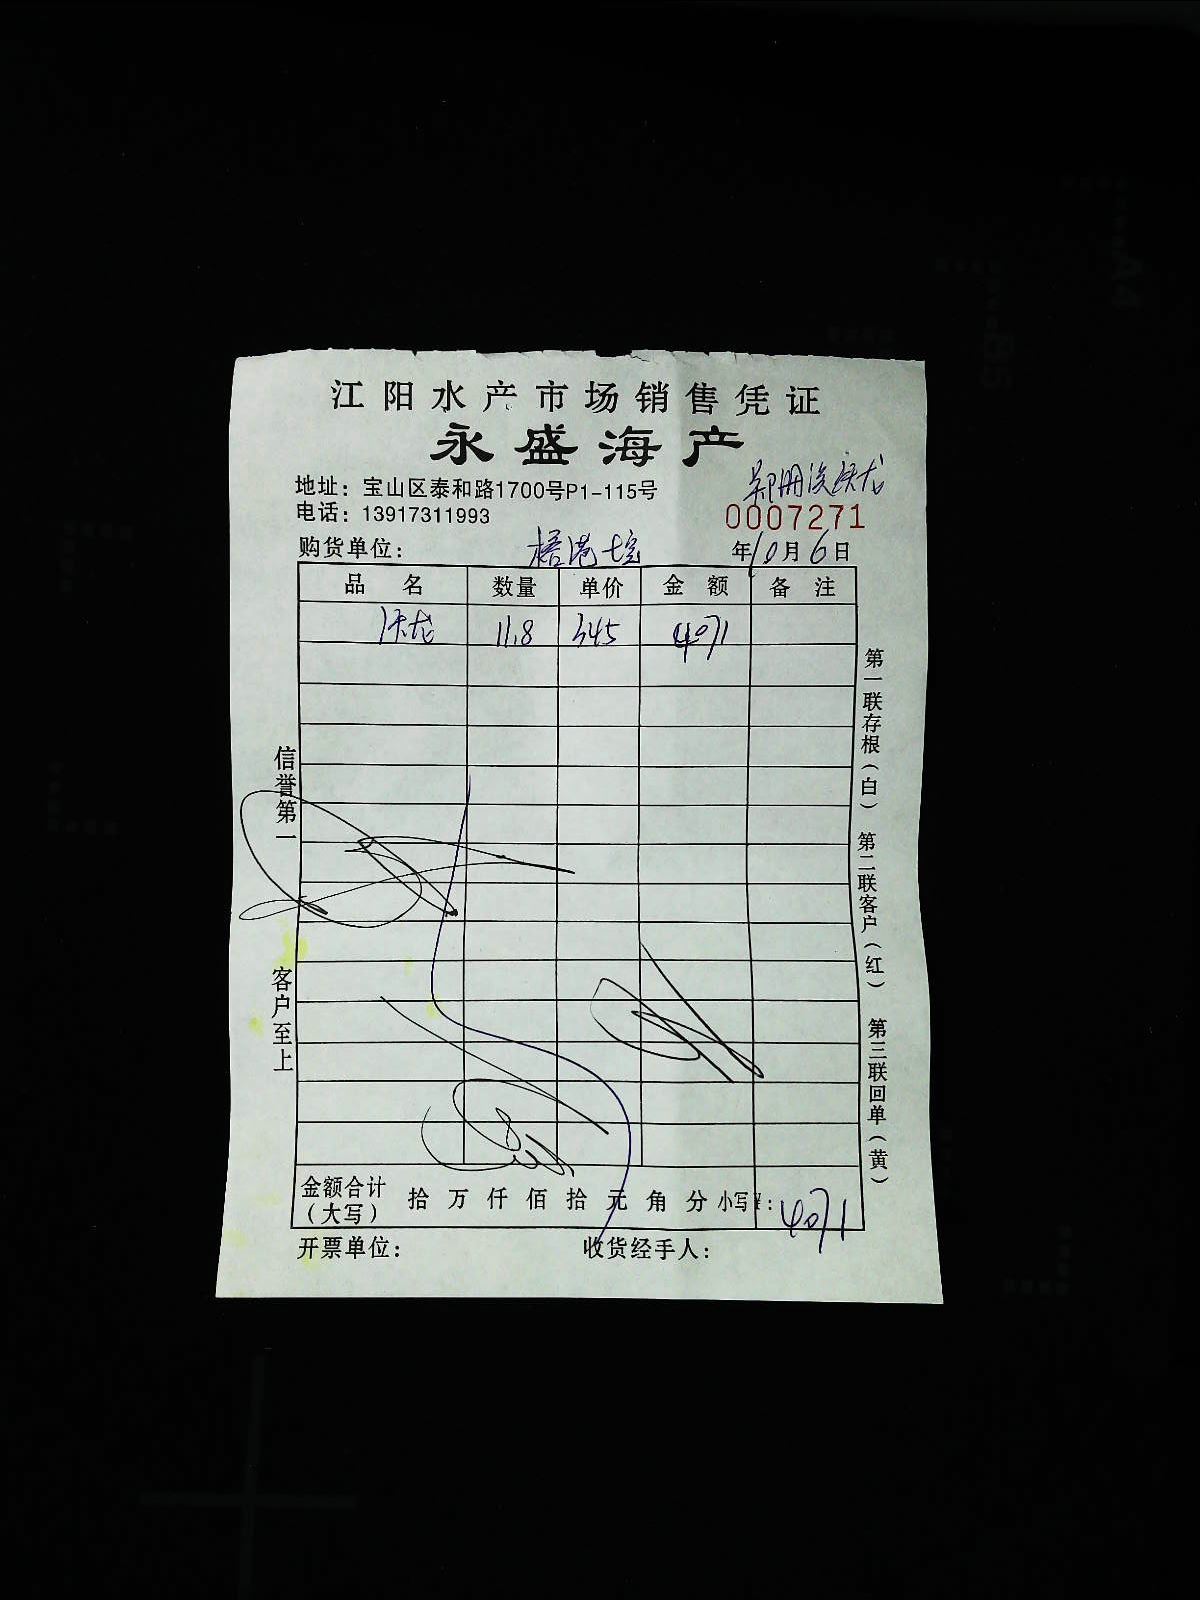 江阳水产市场销售凭证
永盛海产
地址：宝山区泰和路1700号P1-115号
电话：13917311993
0007271
购货单位： 年10月6日
品 名 数量 单价 金 额 备 注
龙 11.8 345 4071
信誉第一
客户至上
第一联存根（白）
第二联客户（红）
第三联回单（黄）
金额合计（大写） 拾 万 仟 佰 拾 元 角 分 小写¥：4071
开票单位： 收货经手人：